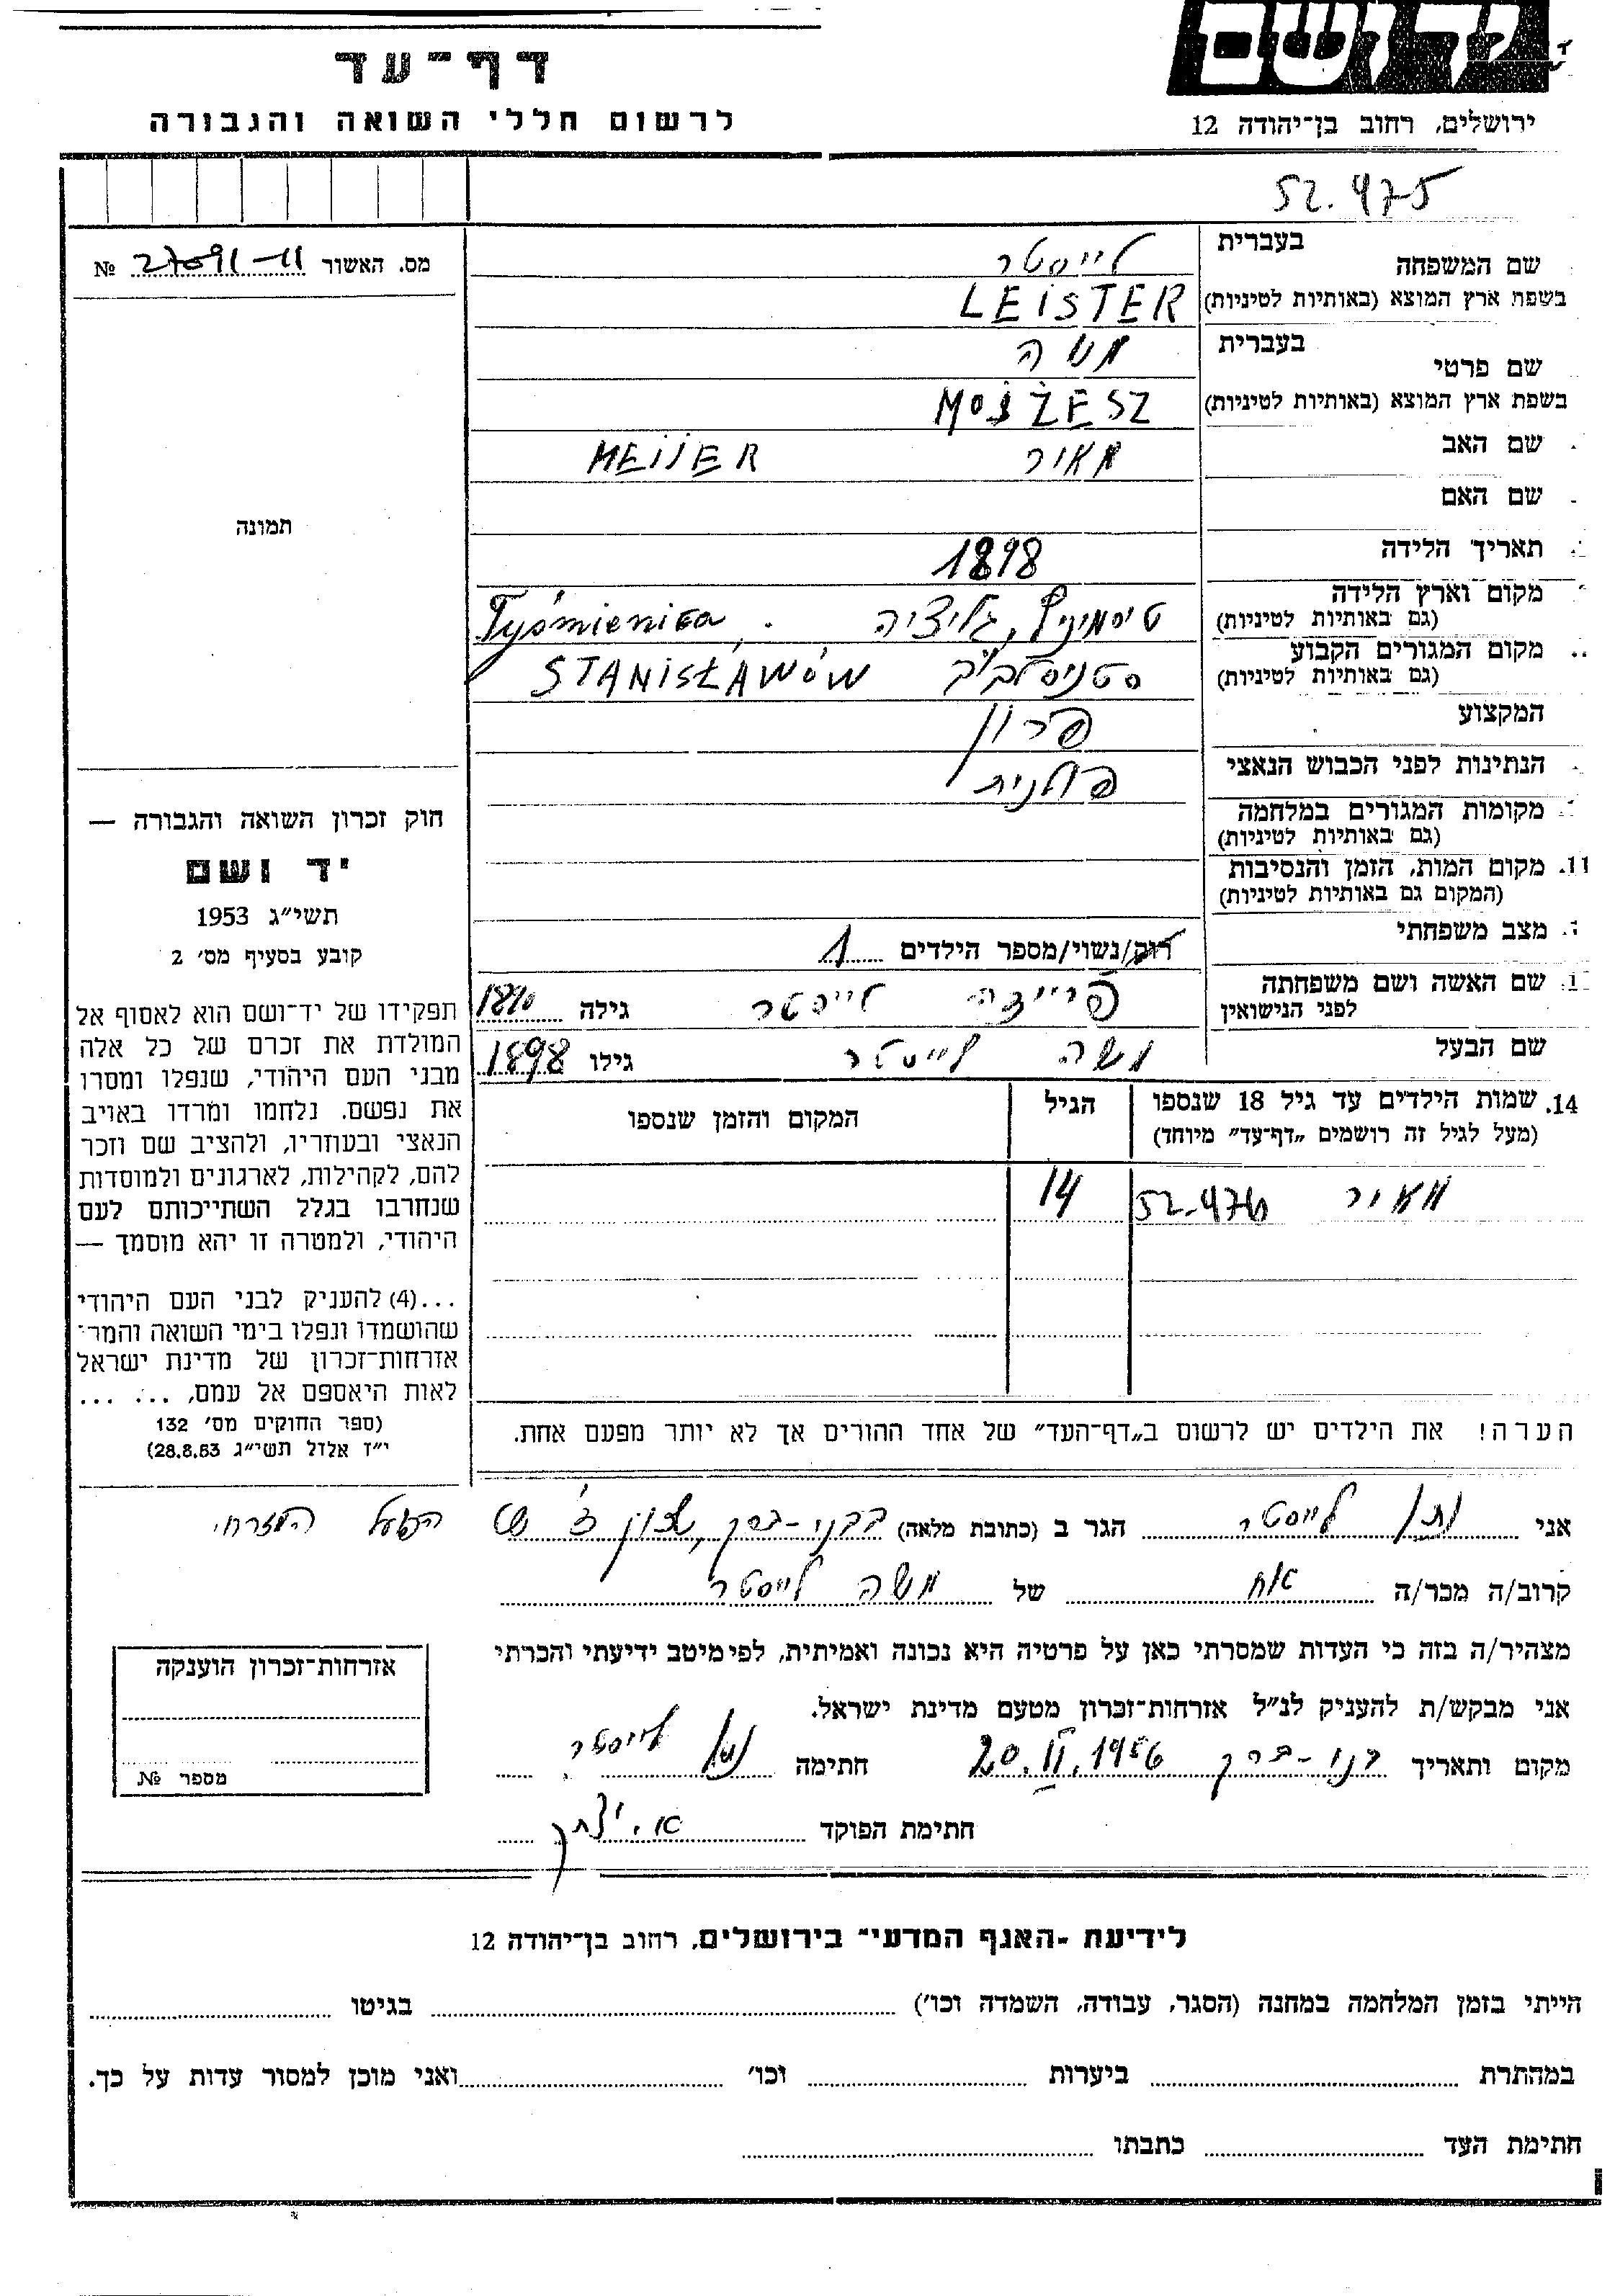 יד ושם
דף-עד
לרשום חללי השואה והגבורה
ירושלים, רחוב בן-יהודה 12
52.475
מס. האשור 27091-11 №
בעברית
שם המשפחה
לייסטר
בשפת ארץ המוצא (באותיות לטיניות) LEISTER
בעברית
שם פרטי
משה
בשפת ארץ המוצא (באותיות לטיניות) MOJŻESZ
שם האב מאיר MEIJER
שם האם
תאריך הלידה 1898
מקום וארץ הלידה
(גם באותיות לטיניות)
גליציה Tyśmienica
מקום המגורים הקבוע
(גם באותיות לטיניות)
STANISŁAWÓW
המקצוע
הנתינות לפני הכבוש הנאצי פולנית
מקומות המגורים במלחמה
(גם באותיות לטיניות)
11. מקום המות, הזמן והנסיבות
(המקום גם באותיות לטיניות)
מצב משפחתי רוק/נשוי/מספר הילדים 1
שם האשה ושם משפחתה
לפני הנישואין
לייסטר גילה
שם הבעל משה לייסטר גילו 1898
14. שמות הילדים עד גיל 18 שנספו
(מעל לגיל זה רושמים "דף-עד" מיוחד)
הגיל
המקום והזמן שנספו
מאיר 52.476 14
הערה! את הילדים יש לרשום ב"דף-העד" של אחד ההורים אך לא יותר מפעם אחת.
תמונה
חוק זכרון השואה והגבורה —
יד ושם
תשי"ג 1953
קובע בסעיף מס' 2
תפקידו של יד-ושם הוא לאסוף אל
המולדת את זכרם של כל אלה
מבני העם היהודי, שנפלו ומסרו
את נפשם, נלחמו ומרדו באויב
הנאצי ובעוזריו, ולהציב שם וזכר
להם, לקהילות, לארגונים ולמוסדות
שנחרבו בגלל השתייכותם לעם
היהודי, ולמטרה זו יהא מוסמך —
...(4) להעניק לבני העם היהודי
שהושמדו ונפלו בימי השואה והמר-
אזרחות-זכרון של מדינת ישראל
לאות היאספם אל עמם, ... ...
(ספר החוקים מס' 132
י"ז אלול תשי"ג 28.8.53)
אני נתן לייסטר הגר ב (כתובת מלאה) בבני-ברק, הפועל המזרחי
קרוב/ה מכר/ה אח של משה לייסטר
מצהיר/ה בזה כי העדות שמסרתי כאן על פרטיה היא נכונה ואמיתית, לפי מיטב ידיעתי והכרתי
אני מבקש/ת להעניק לנ"ל אזרחות-זכרון מטעם מדינת ישראל.
מקום ותאריך בני-ברק 20.II.1956 חתימה נתן לייסטר
חתימת הפוקד
אזרחות-זכרון הוענקה
מספר №
לידיעת -האגף המדעי" בירושלים, רחוב בן-יהודה 12
הייתי בזמן המלחמה במחנה (הסגר, עבודה, השמדה וכו') בגיטו
במהתרת ביערות וכו' ואני מוכן למסור עדות על כך.
חתימת העד כתבתו